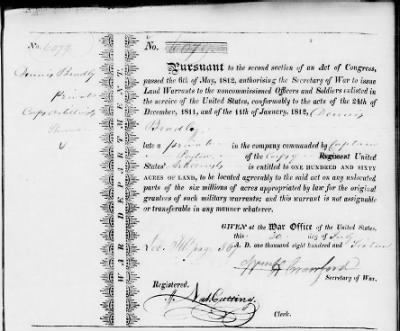 No. 6079
Dennis Bradly
Private
WAR DEPARTMENT.
No. 6079
Pursuant to the second section of an Act of Congress,
passed the 6th of May, 1812, authorising the Secretary of War to issue
Land Warrants to the noncommissioned Officers and Soldiers enlisted in
the service of the United States, conformably to the acts of the 24th of
December, 1811, and of the 11th of January, 1812, Dennis
Bradly
late a private in the company commanded by Captain
of the Corps Regiment United
States' Artillery is entitled to ONE HUNDRED AND SIXTY
ACRES OF LAND, to be located agreeably to the said act on any unlocated
parts of the six millions of acres appropriated by law for the original
grantees of such military warrants; and this warrant is not assignable
or transferable in any manner whatever.
GIVEN at the War Office of the United States,
this 20 day of July
A. D. one thousand eight hundred and Sixteen
Wm H Crawford
Secretary of War.
Registered.
Clerk.